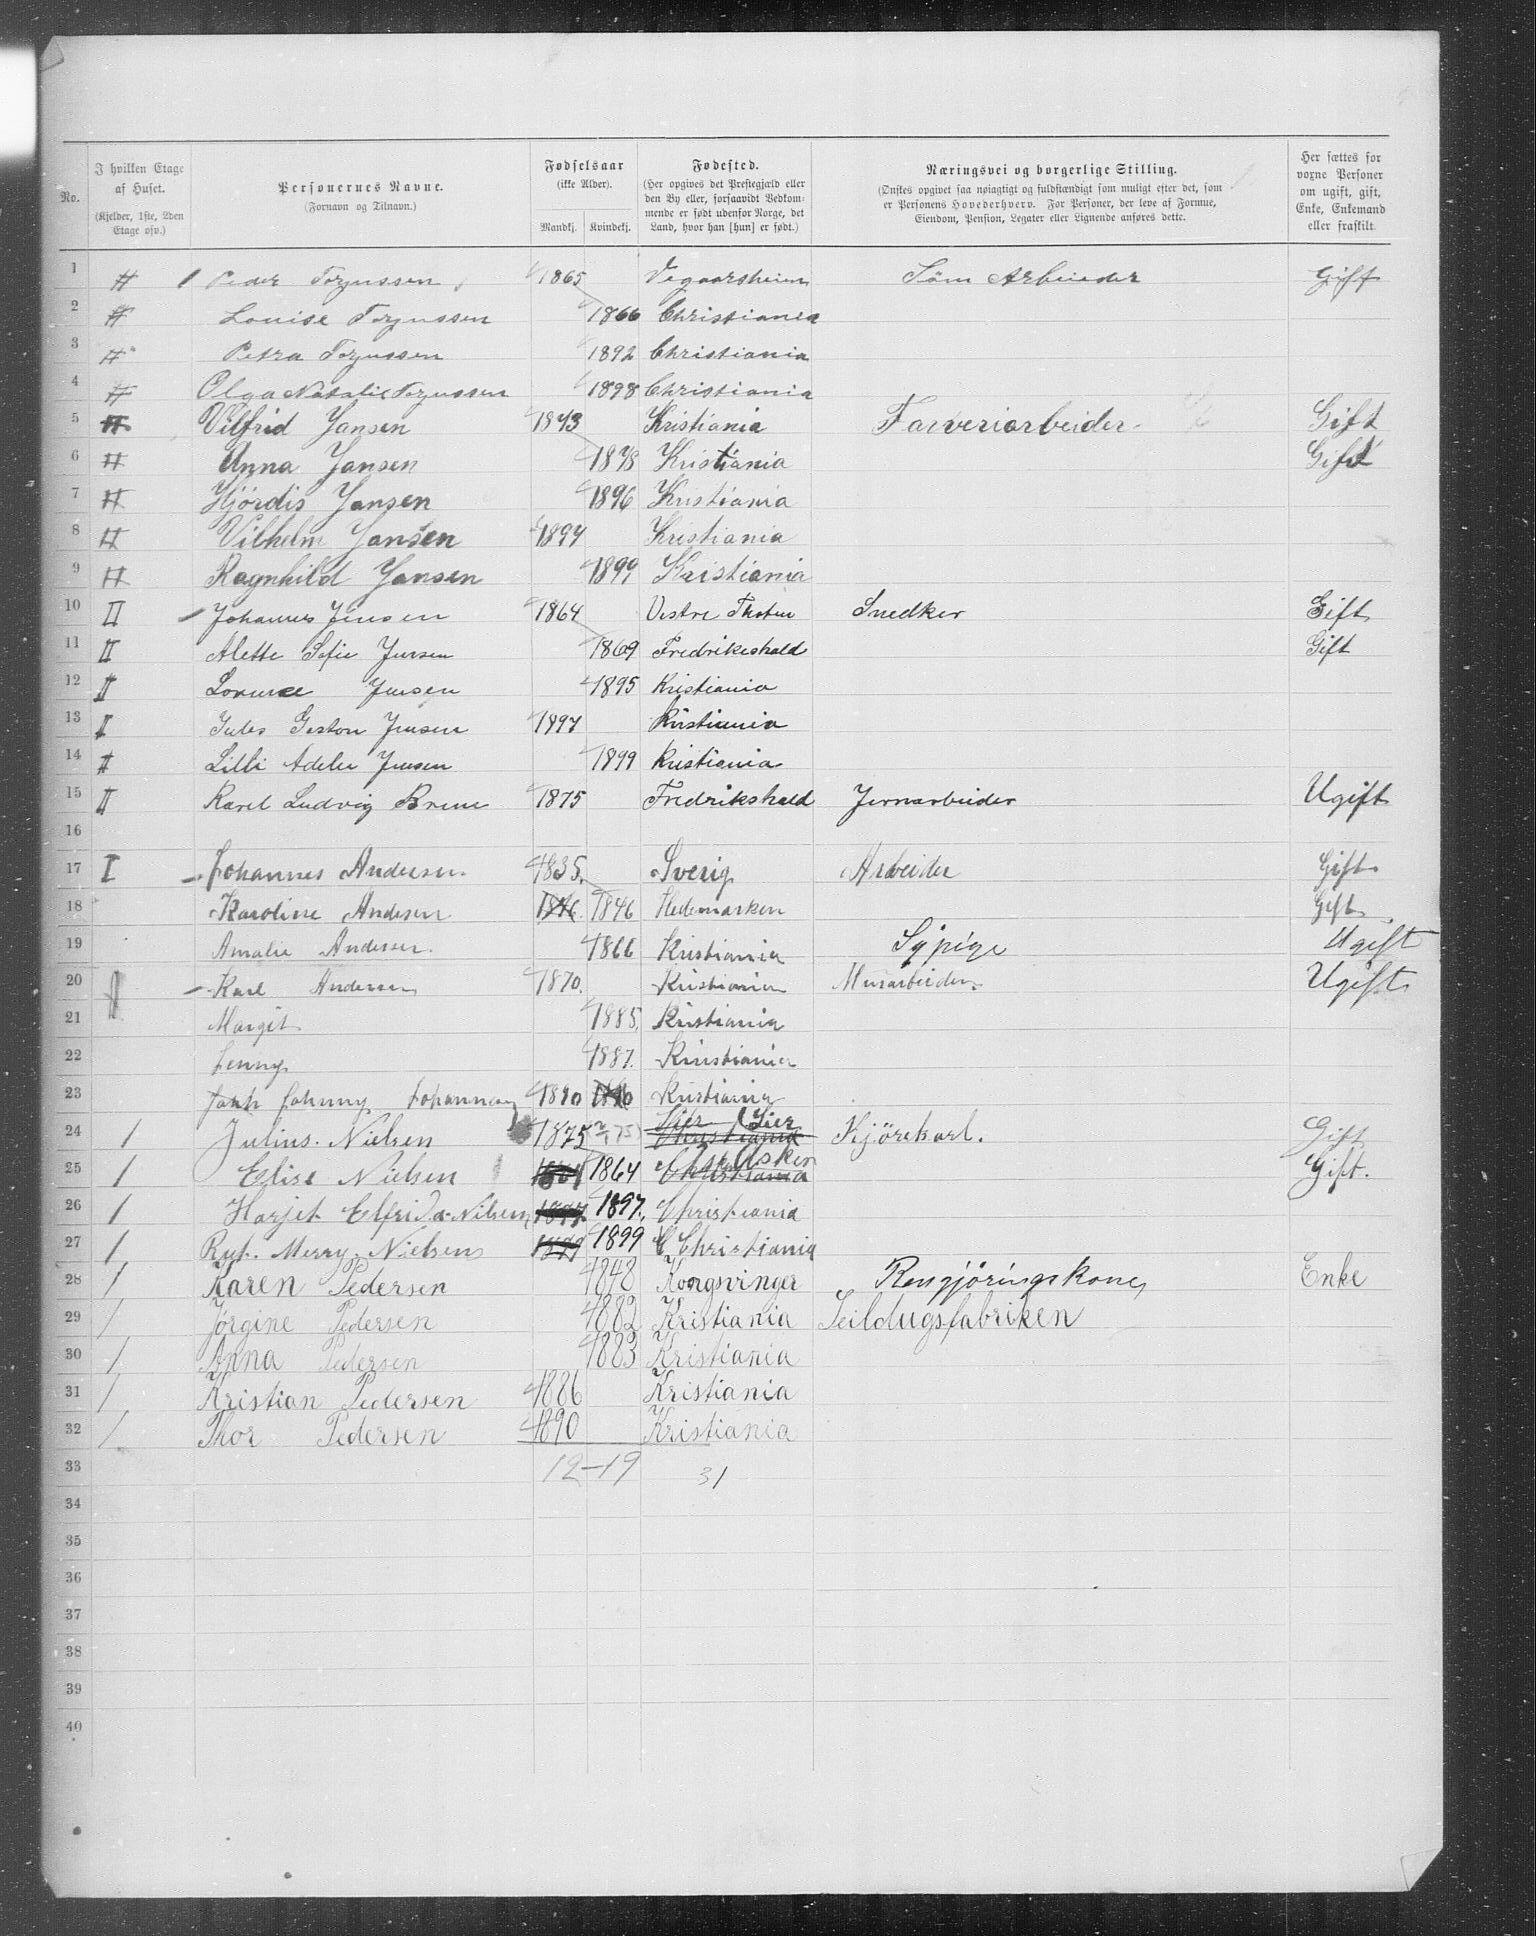 No. | I hvilken Etage af Huset. (Kjelder, 1ste, 2den Etage osv.) | Personernes Navne. (Fornavn og Tilnavn.) | Fødselsaar (ikke Alder). Mandkj. Kvindekj. | Fødested. (Her opgives det Prestegjæld eller den By eller, forsaavidt Vedkommende er født udenfor Norge, det Land, hvor han [hun] er født.) | Næringsvei og borgerlige Stilling. (Ønskes opgivet saa nøiagtigt og fuldstændigt som muligt efter det, som er Personens Hovederhverv. For Personer, der leve af Formue, Eiendom, Pension, Legater eller Lignende anføres dette. | Her sættes for voxne Personer om ugift, gift, Enke, Enkemand eller fraskilt.
1 II Peder Torjussen 1865 Vegaarsheim Töm Arbeider Gift
2 II Louise Torjussen 1866 Christiania
3 II Petra Torjussen 1892 Christiania
4 II Olga Natalie Torjussen 1898 Christiania
5 II Vilfrid Jansen 1873 Kristiania Farveriarbeider Gift
6 II Anna Jansen 1878 Kristiania Gift
7 II Hjördis Jansen 1896 Kristiania
8 II Vilhelm Jansen 1897 Kristiania
9 II Ragnhild Jansen 1899 Kristiania
10 II Johannes Jensen 1864 Vestre Thoten Snedker Gift
11 II Alette Sofie Jensen 1869 Fredrikshald Gift
12 II Jensen 1895 Kristiania
13 II Jules Geston Jensen 1897 Kristiania
14 II Lilli Adele Jensen 1899 Kristiania
15 II Karel Ludvig 1875 Fredrikshald Jernarbeider Ugift
16
17 I Johannes Andersen 1835. Sverig Arbeider Gift
18 Karoline Andersen 1846. 1846 Hedemarken Gift
19 Amalie Andersen. 1866 Kristiania Sypige Ugift
20 Karl Andersen 1870. Kristiania Murarbeider. Ugift
21 Margit 1885. Kristiania
22 Jenny 1887. Kristiania
23 Johnny Johannes 1890 1890 Kristiania
24 1 Julius. Nielsen 1875 Christiania Lier Kjörekarl. Gift
25 1 Elise Nielsen 1864 1864 Christiania Asker Gift.
26 1 Harjet Elfrida Nilsen 1897 1897. Christiania
27 1 Rut. Merry. Nielsen 1899 1899 Christiania
28 1 Karen Pedersen 1848 Kongsvinger Rengjöringskone Enke
29 1 Jørgine Pedersen 1882 Kristiania Seildugsfabriken
30 1 Anna Pedersen 1883 Kristiania
31 1 Kristian Pedersen 1886 Kristiania
32 1 Thor Pedersen 1890 Kristiania
33 12-19 31
34
35
36
37
38
39
40